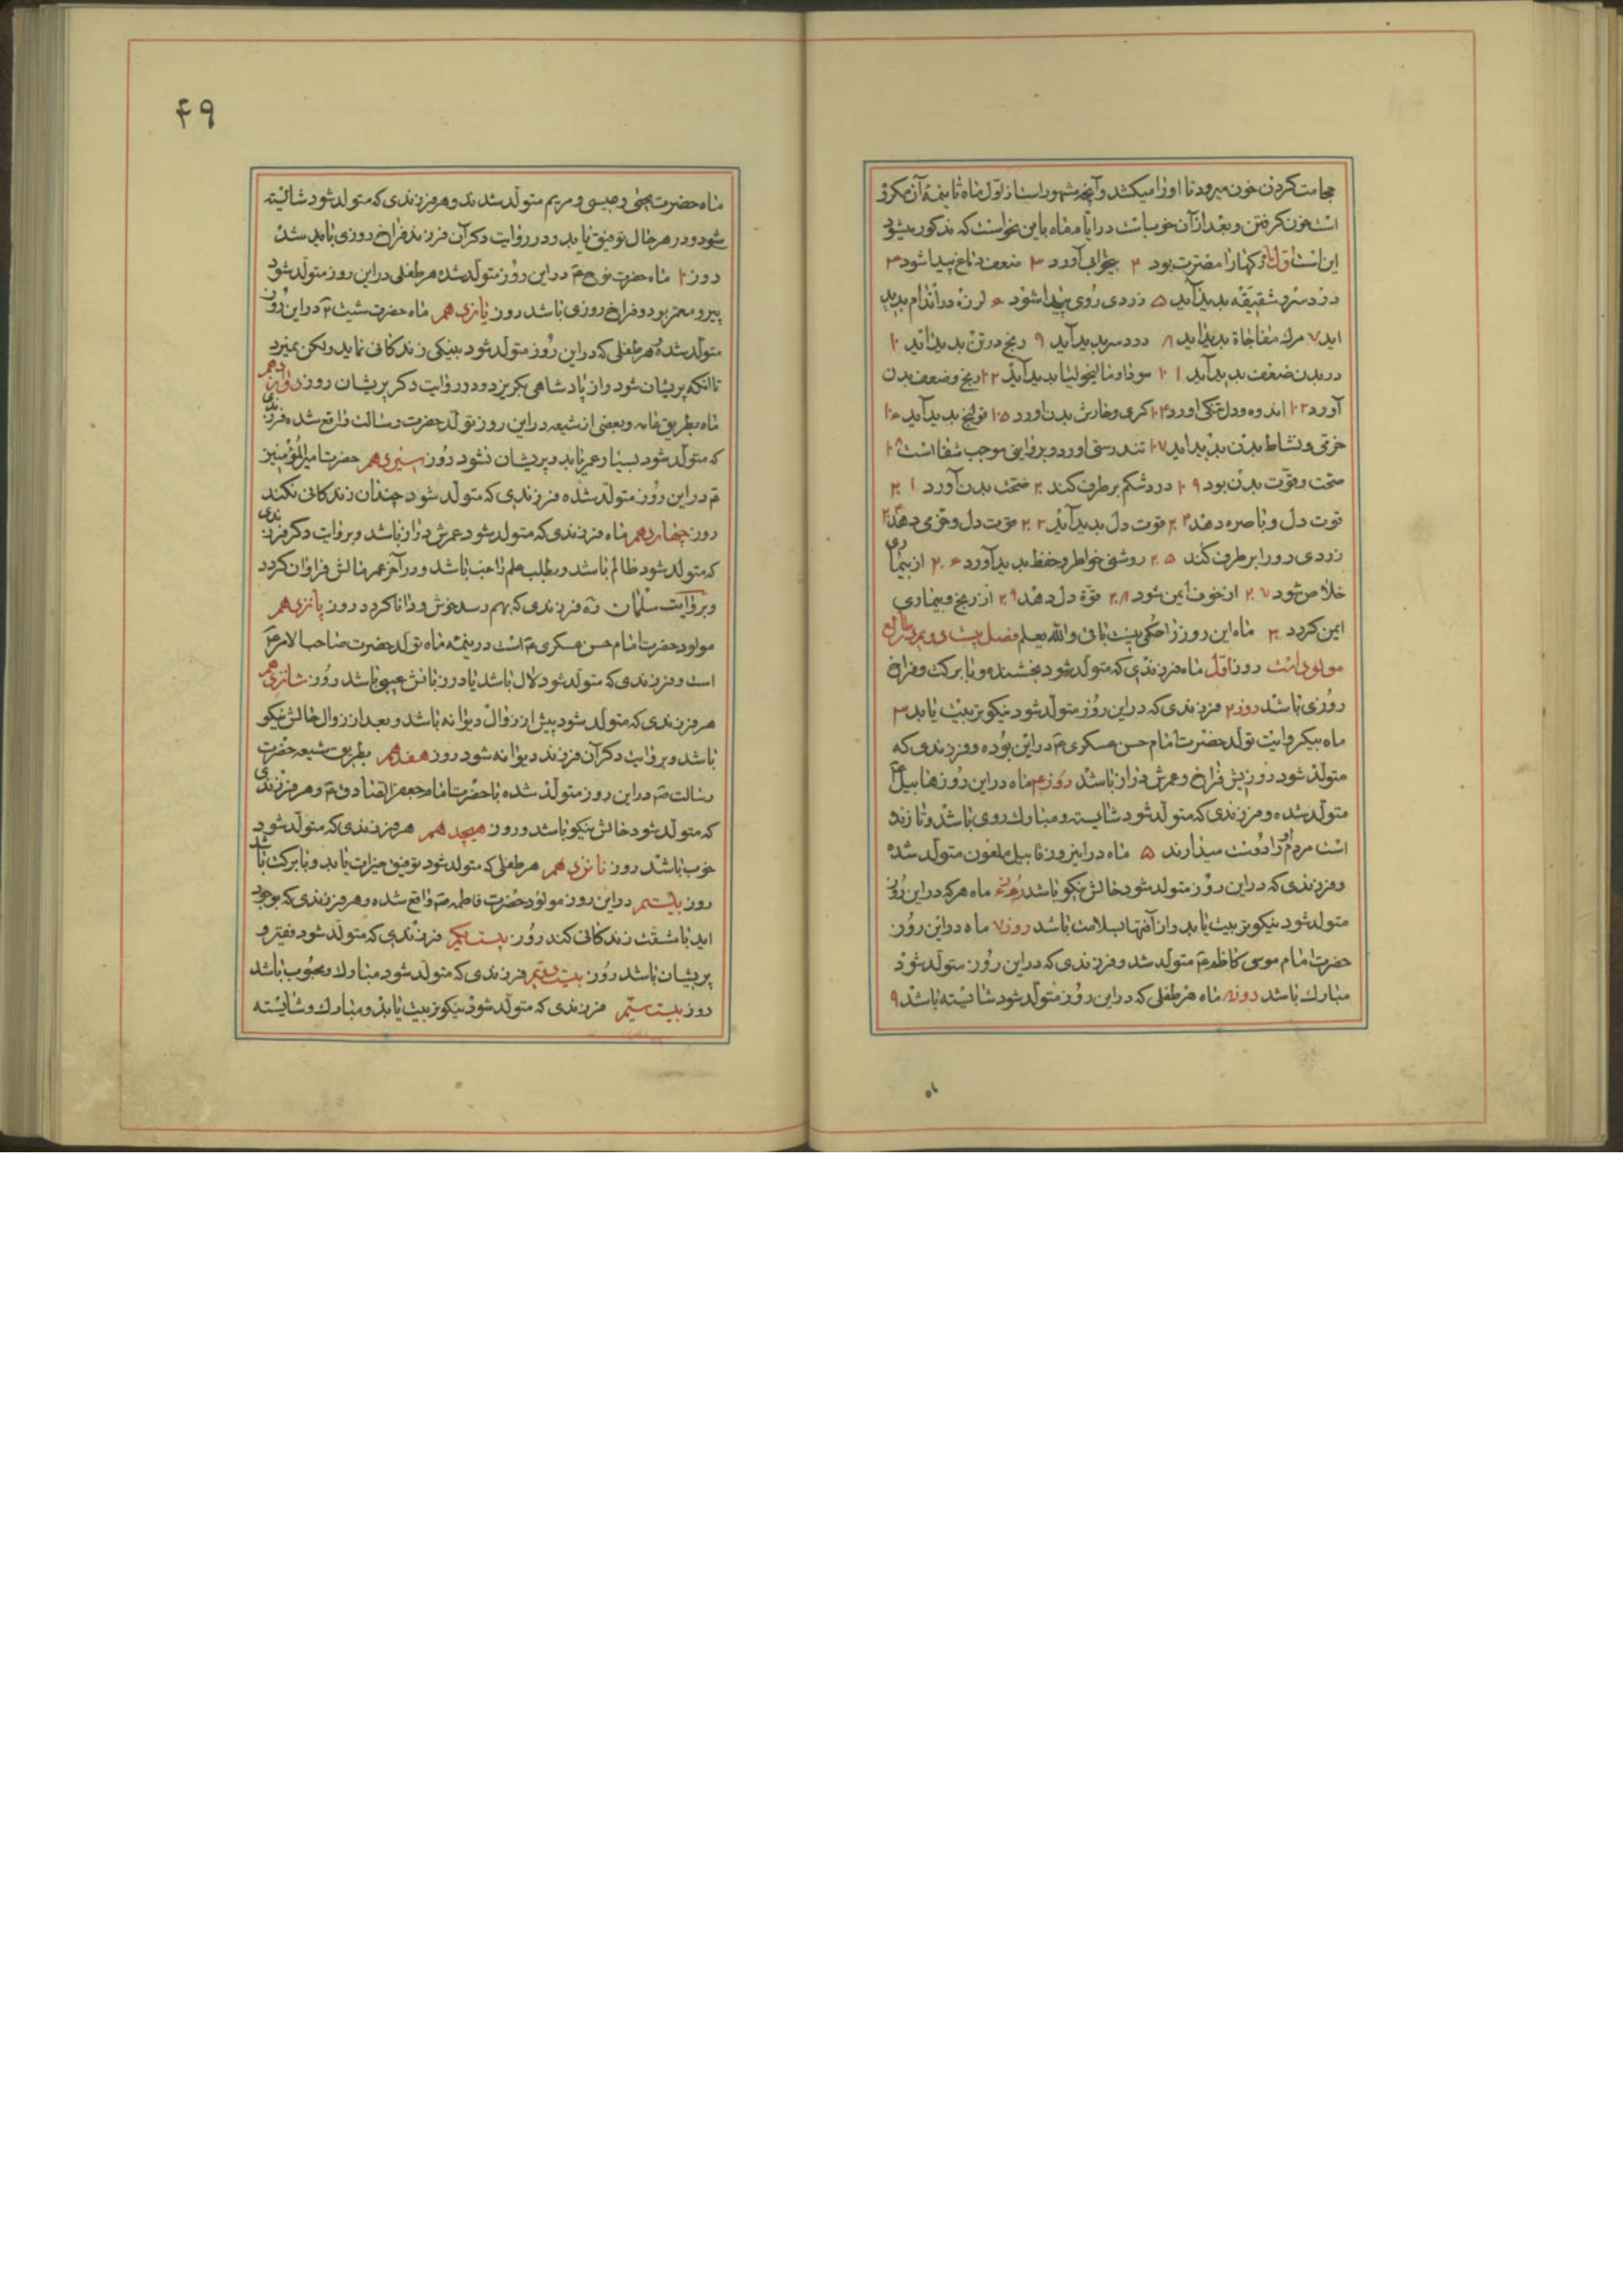 حجامت کردن خون میرود تا او را میکشد و آنچه مشهور است از اول ماه تا نیمهٔ آن مکروه
است خون کرفتن و بعد از آن خوبست در ایام ماه باین نحو است که مذکور میشود
این است اول رکها را مضرت بود ۲ بیخوابی آورد ۳ ضعف دماغ پیدا شود ۴
درد سر و شقیقه بدید آید ۵ زردی روی پیدا شود ۶ لرزه در اندام بدید
اید ۷ مرک مفاجاة بدید اید ۸ درد سر بدید آید ۹ رنج در تن بدید اید ۱۰
در بدن ضعف بدید آید ۱۱ سودا و مالیخولیا بدید آید ۱۲ رنج و ضعف بدن
آورد ۱۳ اندوه و دل تنکی اورد ۱۴ کری و خارش بدن اورد ۱۵ قولنج بدید آید ۱۶
خرمی و نشاط بدن بدید اید ۱۷ تندرستی اورد و بروایتی موجب شفا است ۱۸
صحت و قوت بدن بود ۱۹ درد شکم برطرف کند ۲۰ صحت بدن آورد ۲۱
قوت دل و باصره دهد ۲۲ قوت دل بدید آید ۲۳ قوت دل و خرمی دهد ۲۴
زردی رو را برطرف کند ۲۵ روشنی خواطر و حفظ بدید آورد ۲۶ از بیماری
خلاص شود ۲۷ از خوف ایمن شود ۲۸ قوة دل دهد ۲۹ از رنج و بیماری
ایمن کردد ۳۰ ماه این روز را حکمی نیست باقی والله یعلم فصل بیست و دویم در طالع
مولودانست روز اول ماه فرزندی که متولد شود بخشنده و با برکت و فراخ
روزی باشد روز ۲ فرزندی که در این روز متولد شود نیکو تربیت یابد ۳
ماه بیکروایت تولد حضرت امام حسن عسکری ع در این بوده و فرزندی که
متولد شود روزیش فراخ و عمرش دراز باشد روز ۴ ماه در این روز هابیل ع
متولد شده و فرزندی که متولد شود شایسته و مبارک روی باشد و تا زنده
است مردم او را دوست میدارند ۵ ماه در اینروز قابیل ملعون متولد شده
و فرزندی که در این روز متولد شود حالش نیکو باشد روز ۶ ماه هر که در این روز
متولد شود نیکو تربیت یابد و از آفتها بسلامت باشد روز ۷ ماه در این روز
حضرت امام موسی کاظم ع متولد شد و فرزندی که در این روز متولد شود
مبارک باشد روز ۸ ماه هر طفلی که در این روز متولد شود شایسته باشد ۹
۴۹
ماه حضرت یحیی و عیسی و مریم متولد شدند و هر فرزندی که متولد شود شائیسته
شود و در هر حال توفیق یابد و در روایت دکر آن فرزند فراخ روزی باید شد
روز ۱۰ ماه حضرت نوح ع در این روز متولد شده هر طفلی در این روز متولد شود
پیر و معمر بود و فراخ روزی باشد روز یازدهم ماه حضرت شیث ع در این روز
متولد شده هر طفلی که در این روز متولد شود بنیکی زندکانی نماید ولکن نمیرد
تا انکه پریشان شود و از پادشاهی بکریزد و در روایت دکر پریشان روز دوازدهم
ماه بطریق عامه و بعضی از شیعه در این روز تولد حضرت رسالت واقع شده فرزندی
که متولد شود بسیار عمر یابد و پریشان نشود روز سیزدهم حضرت امیرالمؤمنین
ع در این روز متولد شده فرزندی که متولد شود چندان زندکانی نکند
روز چهاردهم ماه فرزندی که متولد شود عمرش دراز باشد و بروایت دکر فرزندی
که متولد شود ظالم باشد و بطلب علم راغب باشد و در آخر عمر مالش فراوان کردد
و بروایت سلمان ره فرزندی که بهم رسد خوش و دانا کردد روز پانزدهم
مولود حضرت امام حسن عسکری ع است در نیمه ماه تولد حضرت صاحب الامر ع
است و فرزندی که متولد شود لال باشد یا در زبانش عیبی باشد روز شانزدهم
هر فرزندی که متولد شود پیش از زوال دیوانه باشد و بعد از زوال حالش نیکو
باشد و بروایت دکر آن فرزند دیوانه شود روز هفدهم بطریق شیعه حضرت
رسالت ص در این روز متولد شده با حضرت امام جعفر الصادق ع و هر فرزندی
که متولد شود حالش نیکو باشد و روز هیجدهم هر فرزندی که متولد شود
خوب باشد روز نانزدهم هر طفلی که متولد شود توفیق خیرات یابد و با برکت باشد
روز بیستم در این روز مولود حضرت فاطمه ص واقع شده و هر فرزندی که بوجود
اید با مشقت زندکانی کند روز بیست یکم فرزندی که متولد شود فقیر و
پریشان باشد روز بیست دویم فرزندی که متولد شود مبارک و محبوب باشد
روز بیست سیم فرزندی که متولد شود نیکو تربیت یابد و مبارک و شایسته